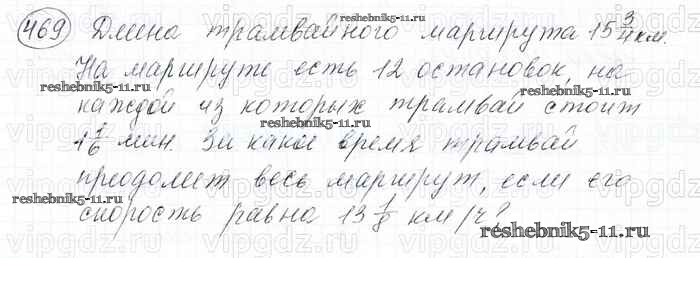 469 Длина трамвайного маршрута 15 3/4 км.
На маршруте есть 12 остановок, на
каждой из которых трамвай стоит
1 1/6 мин. За какое время трамвай
преодолеет весь маршрут, если его
скорость равна 13 1/8 км/ч?
reshebnik5-11.ru
reshebnik5-11.ru
reshebnik5-11.ru
reshebnik5-11.ru
reshebnik5-11.ru
vipgdz.ru